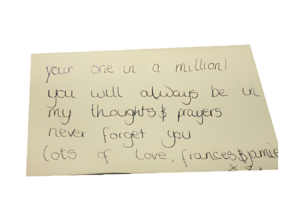 your one in a million!
you will always be in
my thoughts & prayers
never forget you
Lots of Love, frances & jamie
xx